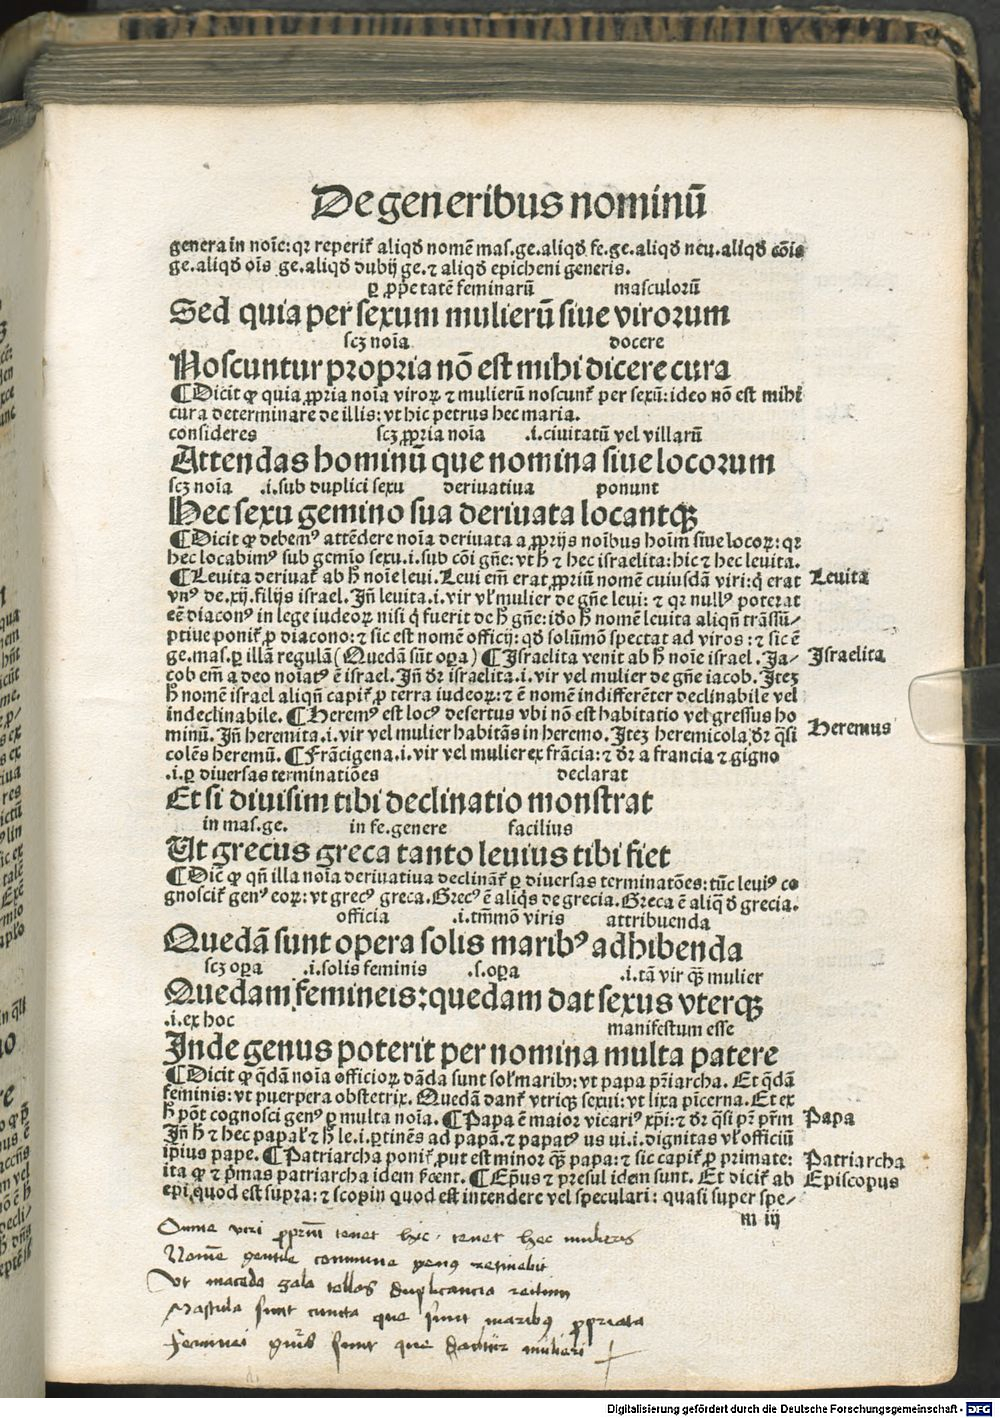 De generibus nominū
genera in noīe: qr reperiť aliqđ nomē mas.ge.aliqđ fe.ge.aliqđ neu.aliqđ cōis
ge.aliqđ oīs ge.aliqđ dubij ge.⁊ aliqđ epicheni generis.
ꝑ ꝓp̄etatē feminarū masculorū
Sed quia per sexum mulierū siue virorum
scꝫ noīa docere
Noscuntur propria nō est mihi dicere cura
¶Dicit ꝙ quia ꝓpria noīa viroꝝ ⁊ mulierū noscunť per sexū: ideo nō est mihi
cura determinare de illis: vt hic petrus hec maria.
consideres scꝫ ꝓpria noīa .i.ciuitatū vel villarū
Attendas hominū que nomina siue locorum
scꝫ noīa .i.sub duplici sexu deriuatiua ponunt
Hec sexu gemino sua deriuata locantqꝫ
¶Dicit ꝙ debemꝰ attēdere noīa deriuata a ꝓprijs noībus hoīm siue locoꝝ: qr
hec locabimꝰ sub gemīo sexu.i.sub cōi gn̄e: vt ħ ⁊ hec israelita: hic ⁊ hec leuita.
¶Leuita deriuať ab ħ noīe leui. Leui em̄ erat ꝓpriū nomē cuiusdā viri: q̇ erat
vnꝰ de.xij.filijs israel. Jn̄ leuita.i.vir vľ mulier de gn̄e leui: ⁊ qr nullꝰ poterat
eē diaconꝰ in lege iudeoꝝ nisi q̇ fuerit de ħ gn̄e: iđo ħ nomē leuita aliqn̄ trāssū⸗
ptiue poniť ꝓ diacono: ⁊ sic est nomē officij: qđ solūmō spectat ad viros: ⁊ sic ē
ge.mas.ꝑ illā regulā (Quedā sūt oꝑa) ¶Israelita venit ab ħ noīe israel. Ja⸗
cob em̄ a deo noīatꝰ ē israel. Jn̄ dr̄ israelita.i.vir vel mulier de gn̄e iacob. Jteꝫ
ħ nomē israel aliqn̄ capiť ꝓ terra iudeoꝝ: ⁊ ē nomē indifferēter declinabile vel
indeclinabile. ¶Heremꝰ est locꝰ desertus vbi nō est habitatio vel gressus ho
minū. Jn̄ heremita.i.vir vel mulier habitās in heremo. Jteꝫ heremicola dr̄ qsi
colēs heremū. ¶Frācigena.i.vir vel mulier ex frācia: ⁊ dr̄ a francia ⁊ gigno
.i.ꝑ diuersas terminatiōes declarat
Et si diuisim tibi declinatio monstrat
in mas.ge. in fe.genere facilius
Ut grecus greca tanto leuius tibi fiet
¶Dic̄ ꝙ qn̄ illa noīa deriuatiua declināť ꝑ diuersas terminatōes: tūc leuiꝰ co
gnosciť genꝰ eoꝝ: vt grecꝰ greca. Grecꝰ ē aliq̇s de grecia. Greca ē aliq̄ đ grecia.
officia .i.tm̄mō viris attribuenda
Quedā sunt opera solis maribꝰ adhibenda
scꝫ oꝑa .i.solis feminis .s.oꝑa .i.tā vir qꝫ mulier
Quedam femineis: quedam dat sexus vterqꝫ
.i.ex hoc manifestum esse
Inde genus poterit per nomina multa patere
¶Dicit ꝙ q̄dā noīa officioꝝ dāda sunt soľ maribꝰ: vt papa pr̄iarcha. Et q̄dā
feminis: vt puerpera obstetrix. Quedā danť vtriqꝫ sexui: vt lixa pīcerna. Et ex
ħ pōt cognosci genꝰ ꝑ multa noīa. ¶Papa ē maior vicariꝰ xp̄i: ⁊ dr̄ qsi pr̄ pr̄m
Jn̄ ħ ⁊ hec papaľ ⁊ ħ le.i.ꝑtinēs ad papā.⁊ papatꝰ us ui.i.dignitas vľ officiū
ipsius pape. ¶Patriarcha poniť ꝓut est minor qꝫ papa: ⁊ sic capiť ꝓ primate:
ita ꝙ ⁊ p̄mas patriarcha idem sūt. ¶Ep̄us ⁊ presul idem sunt. Et diciť ab
epi.quod est supra: ⁊ scopin quod est intendere vel speculari: quasi super spe⸗
m iij
Leuita
Israelita
Heremus
Papa
Patriarcha
Episcopus
Omne viri ꝓprium tenet hic. tenet hec mulieris
Nomē gentile commune genꝰ retinebit
Ut macedo gala tollas duplicancia rectum
Mascula sunt cuncta que sunt maribꝰ ꝓpriata
Feminei gn̄is sunt que dantur mulieri
Digitalisierung gefördert durch die Deutsche Forschungsgemeinschaft - DFG